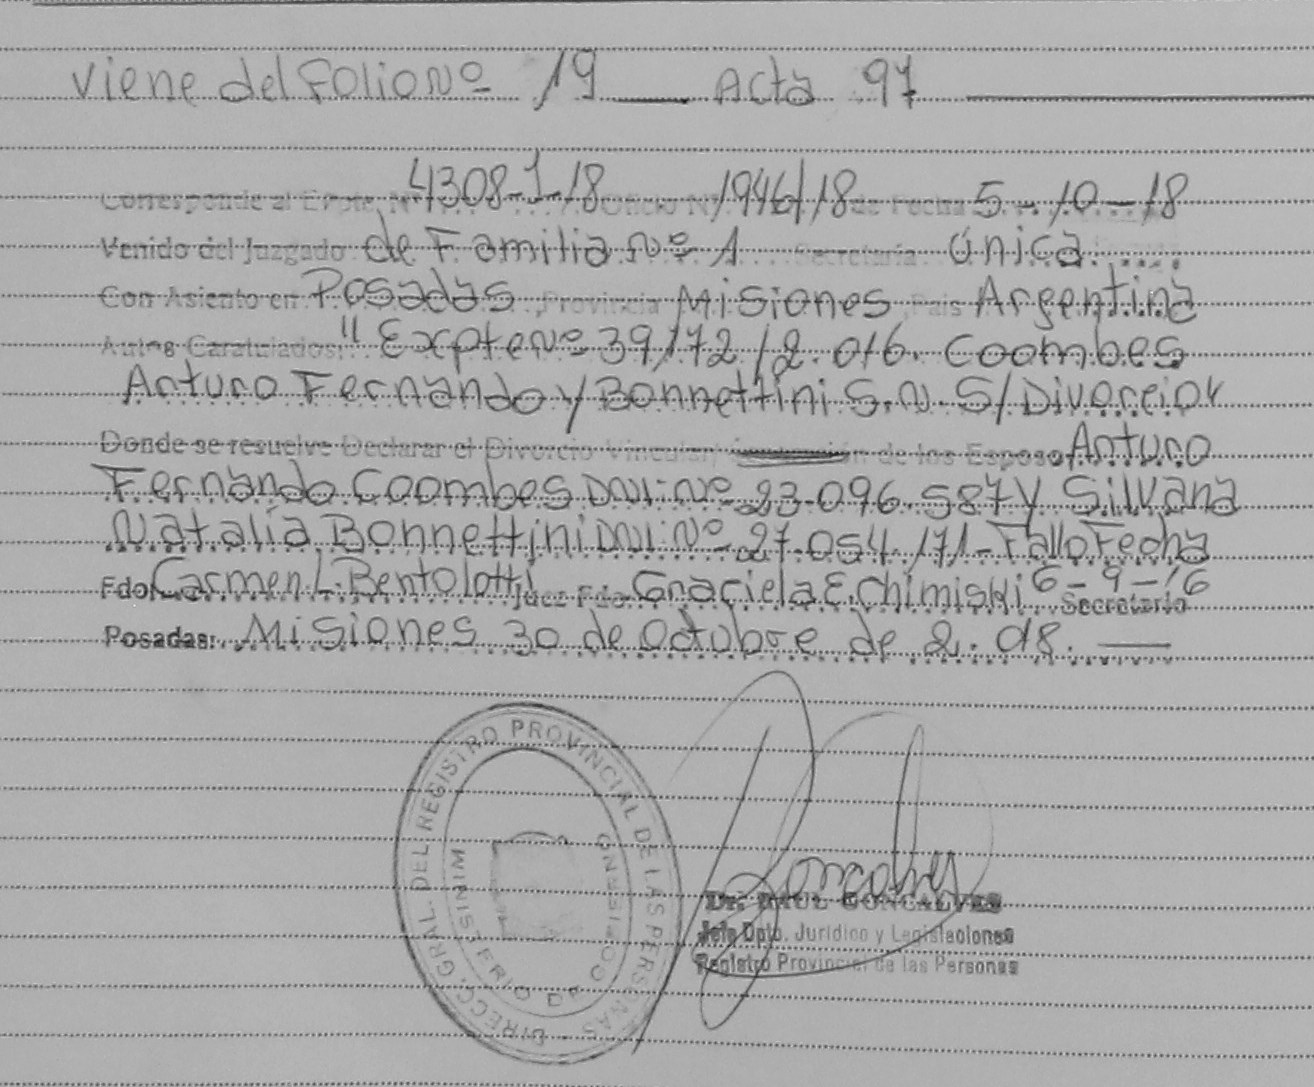 Viene del Folio Nº 19 Acta 97
Corresponde al Expte. Nº 4308-1-18 Oficio Nº 1946/18 de Fecha 5-10-18
Venido del Juzgado de Familia Nº 1 Secretaría Única
Con Asiento en Posadas, Provincia Misiones, País Argentina
Autos Caratulados: "Expte Nº 39172/2.016. Coombes
Arturo Fernando y Bonnettini S.N. S/Divorcio"
Donde se resuelve Declarar el Divorcio Vincular/ de los Esposo Arturo
Fernando Coombes DNI: Nº 23.096.587 y Silvana
Natalia Bonnettini DNI: Nº 27.054.171- Fallo Fecha
6-9-16
Fdo. Carmen L. Bentolotti Juez Fdo. Graciela E. Chimiski Secretario
Posadas: Misiones 30 de Octubre de 2.018.
DIRECC. GRAL. DEL REGISTRO PROVINCIAL DE LAS PERSONAS
MINISTERIO DE GOBIERNO
Dr. RAUL GONCALVES
Jefe Dpto. Jurídico y Legislaciones
Registro Provincial de las Personas